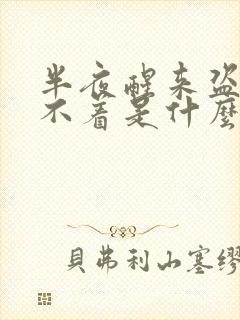 半夜醒来盗
不着是什麼
貝弗利山塞繆